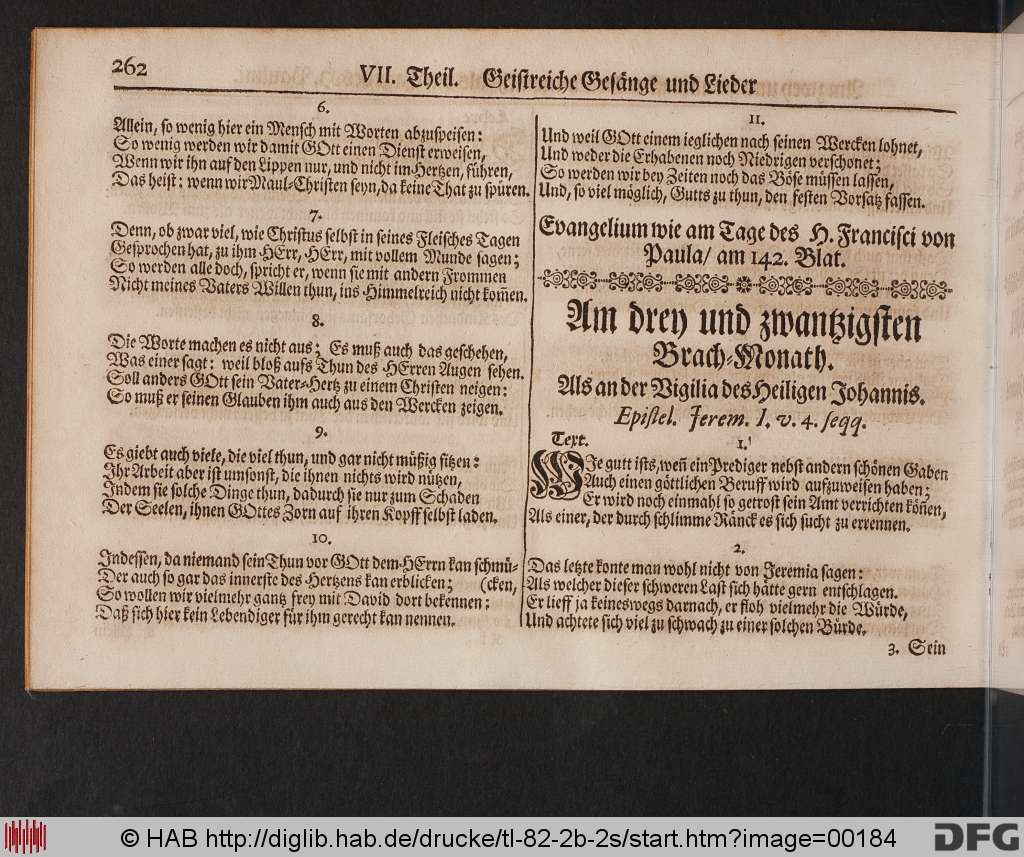 262
VII. Theil. Geistreiche Gesänge und Lieder
6.
Allein, so wenig hier ein Mensch mit Worten abzuspeisen:
So wenig werden wir damit GOtt einen Dienst erweisen,
Wenn wir ihn auf den Lippen nur, und nicht im Hertzen, führen,
Das heist: wenn wir Maul-Christen seyn, da keine That zu spüren.
7.
Denn, ob zwar viel, wie Christus selbst in seines Fleisches Tagen
Gesprochen hat, zu ihm HErr, HErr, mit vollem Munde sagen;
So werden alle doch, spricht er, wenn sie mit andern Frommen
Nicht meines Vaters Willen thun, ins Himmelreich nicht kom̃en.
8.
Die Worte machen es nicht aus; Es muß auch das geschehen,
Was einer sagt: weil bloß aufs Thun des HErren Augen sehen.
Soll anders GOtt sein Vater-Hertz zu einem Christen neigen:
So muß er seinen Glauben ihm auch aus den Wercken zeigen.
9.
Es giebt auch viele, die viel thun, und gar nicht müßig sitzen:
Ihr Arbeit aber ist umsonst, die ihnen nichts wird nützen,
Indem sie solche Dinge thun, dadurch sie nur zum Schaden
Der Seelen, ihnen GOttes Zorn auf ihren Kopff selbst laden.
10.
Indessen, da niemand sein Thun vor GOtt dem HErrn kan schmü-
Der auch so gar das innerste des Hertzens kan erblicken; (cken,
So wollen wir vielmehr gantz frey mit David dort bekennen:
Daß sich hier kein Lebendiger für ihm gerecht kan nennen.
11.
Und weil GOtt einem ieglichen nach seinen Wercken lohnet,
Und weder die Erhabenen noch Niedrigen verschonet:
So werden wir bey Zeiten noch das Böse müssen lassen,
Und, so viel möglich, Gutts zu thun, den festen Vorsatz fassen.
Evangelium wie am Tage des H. Francisci von
Paula/ am 142. Blat.
Am drey und zwantzigsten
Brach-Monath.
Als an der Vigilia des Heiligen Johannis.
Epistel. Jerem. I. v. 4. seqq.
Text.
1.
WIe gutt ists, weñ ein Prediger nebst andern schönen Gaben
Auch einen göttlichen Beruff wird aufzuweisen haben;
Er wird noch einmahl so getrost sein Amt verrichten köñen,
Als einer, der durch schlimme Ränck es sich sucht zu errennen.
2.
Das letzte konte man wohl nicht von Jeremia sagen:
Als welcher dieser schweren Last sich hätte gern entschlagen.
Er lieff ja keineswegs darnach, er floh vielmehr die Würde,
Und achtete sich viel zu schwach zu einer solchen Bürde.
3. Sein
© HAB http://diglib.hab.de/drucke/tl-82-2b-2s/start.htm?image=00184
DFG